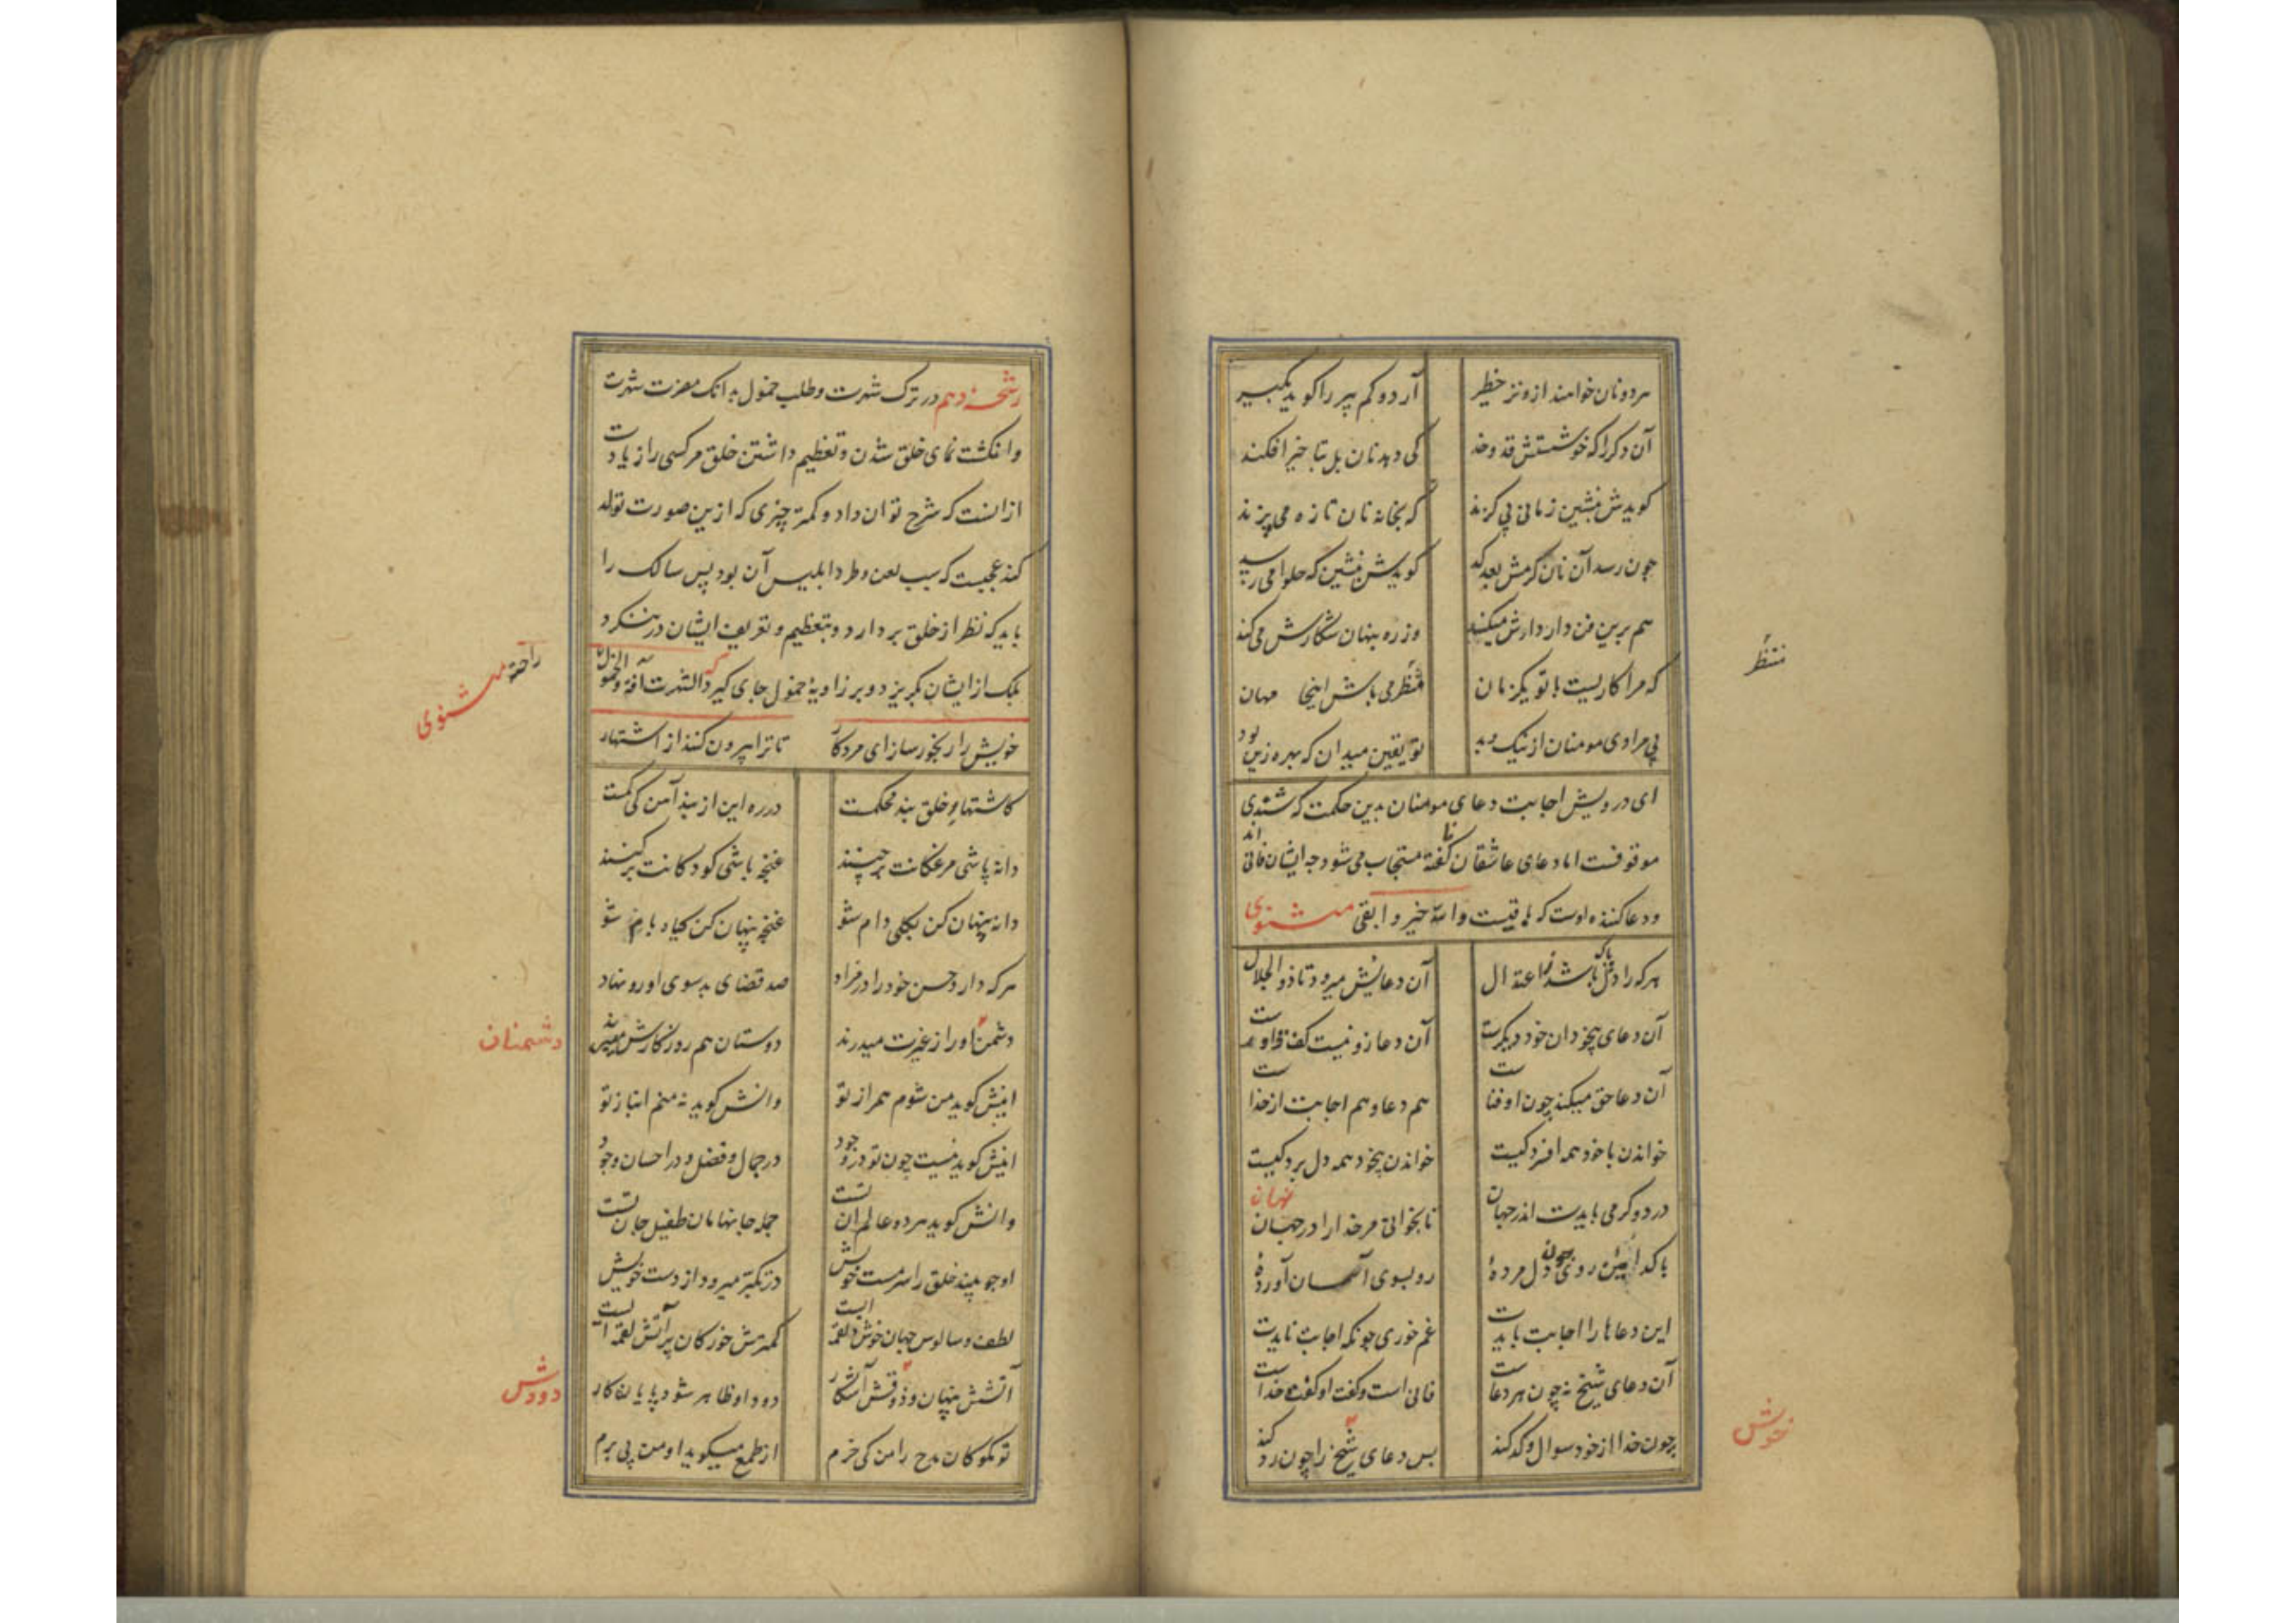 هر دو نان خواهند از وتر خطیر
آرد و کم پیر را کوید بکیر
آن دکر را که خوشستش قد و خد
کی دهد نان بل بتاخیر افکند
کویدش بنشین زمانی بی کزند
که بخانه نان تازه می پزند
چون رسد آن نان کرمش بعد کد
کویدش بنشین که حلوا می رسد
هم برین فن دار دارش میکند
وز ره پنهان شکارش می کند
که مرا کاریست با تو یکزمان
منتظر می باش اینجا
منتظر
بی مرادی مومنان از نیک و بد
تو یقین میدان که بهر زین بود
ای درویش اجابت دعای مومنان بدین حکمت که شنیدی
موقوفست اما دعای عاشقان ناکفته مستجاب می شود چه ایشان فانی اند
و دعا کننده اوست که باقیست والله خیر و ابقی مثنوی
هر که را دل پاک باشد ز اعتدال
آن دعایش میرود تا ذو الجلال
آن دعای بیخودان خود دیکرست
آن دعا زو نیست کفت داورست
آن دعا حق میکند چون او فناست
هم دعا و هم اجابت از خداست
خواندن با خود همه افسردکیست
خواندن بیخود همه دل بردکیست
درد و کرمی بایدت اندر جهان
تا بخوانی مر خدا را در نهان
با کدامین روی چون دل مردهٔ
رو بسوی آسمان آوردهٔ
این دعاها را اجابت بایدت
غم خوری چونکه اجابت نایدت
آن دعای شیخ نه چون هر دعاست
فانی است و کفت او کفت خداست
چون خدا از خود سوال و کد کند
پس دعای شیخ را چون رد کند
خویش
رشحهٔ دهم در ترک شهرت و طلب خمول بدانک مضرت شهرت
و انکشت نمای خلق شدن و تعظیم داشتن خلق مر کسی را زیادت
از انست که شرح توان داد و کمتر چیزی که ازین صورت تولد
کند عجبیست که سبب لعن و طرد ابلیس آن بود پس سالک را
باید که نظر از خلق بر دارد و بتعظیم و تعریف ایشان در ننکرد
بلک از ایشان بکریزد و بر زاویهٔ خمول جای کیرد که الشهرت آفة والخمول
راحة مثنوی
خویش را رنجور ساز ای مرد کار
تا ترا بیرون کنند از اشتهار
کاشتهار خلق بند محکمست
در ره این از بند آهن کی کمست
دانه باشی مرغکانت بر چنند
غنچه باشی کودکانت بر کنند
دانه پنهان کن بکلی دام شو
غنچه پنهان کن کیاه بام شو
هر که دارد حسن خود را در مزاد
صد قضای بد سوی او رو نهاد
دشمنان او را ز غیرت میدرند
دوستان هم روزکارش میبرند
دشمنان
اینش کوید من شوم همراز تو
وانش کوید نه منم انباز تو
اینش کوید نیست چون تو در وجود
در جمال و فضل و در احسان وجود
وانش کوید هر دو عالم ان تست
جمله جانهامان طفیل جان تست
او چو بیند خلق را سرمست خویش
در تکبر میرود از دست خویش
لطف و سالوس جهان خوش لقمه ایست
کمترش خور کان پر آتش لقمه ایست
آتشش پنهان و ذوقش آشکار
دود او ظاهر شود پایان کار
دودش
تو مکو کان مدح را من کی خرم
از طمع میکوید او من پی برم